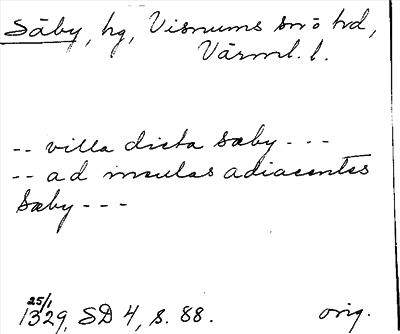 Säby, hg, Visnums sn o hd,
Värml. l.
-- villa dicta sæby ---
-- ad insulas adiacentes
sæby ---
25/1
1329, SD 4, s. 88. orig.